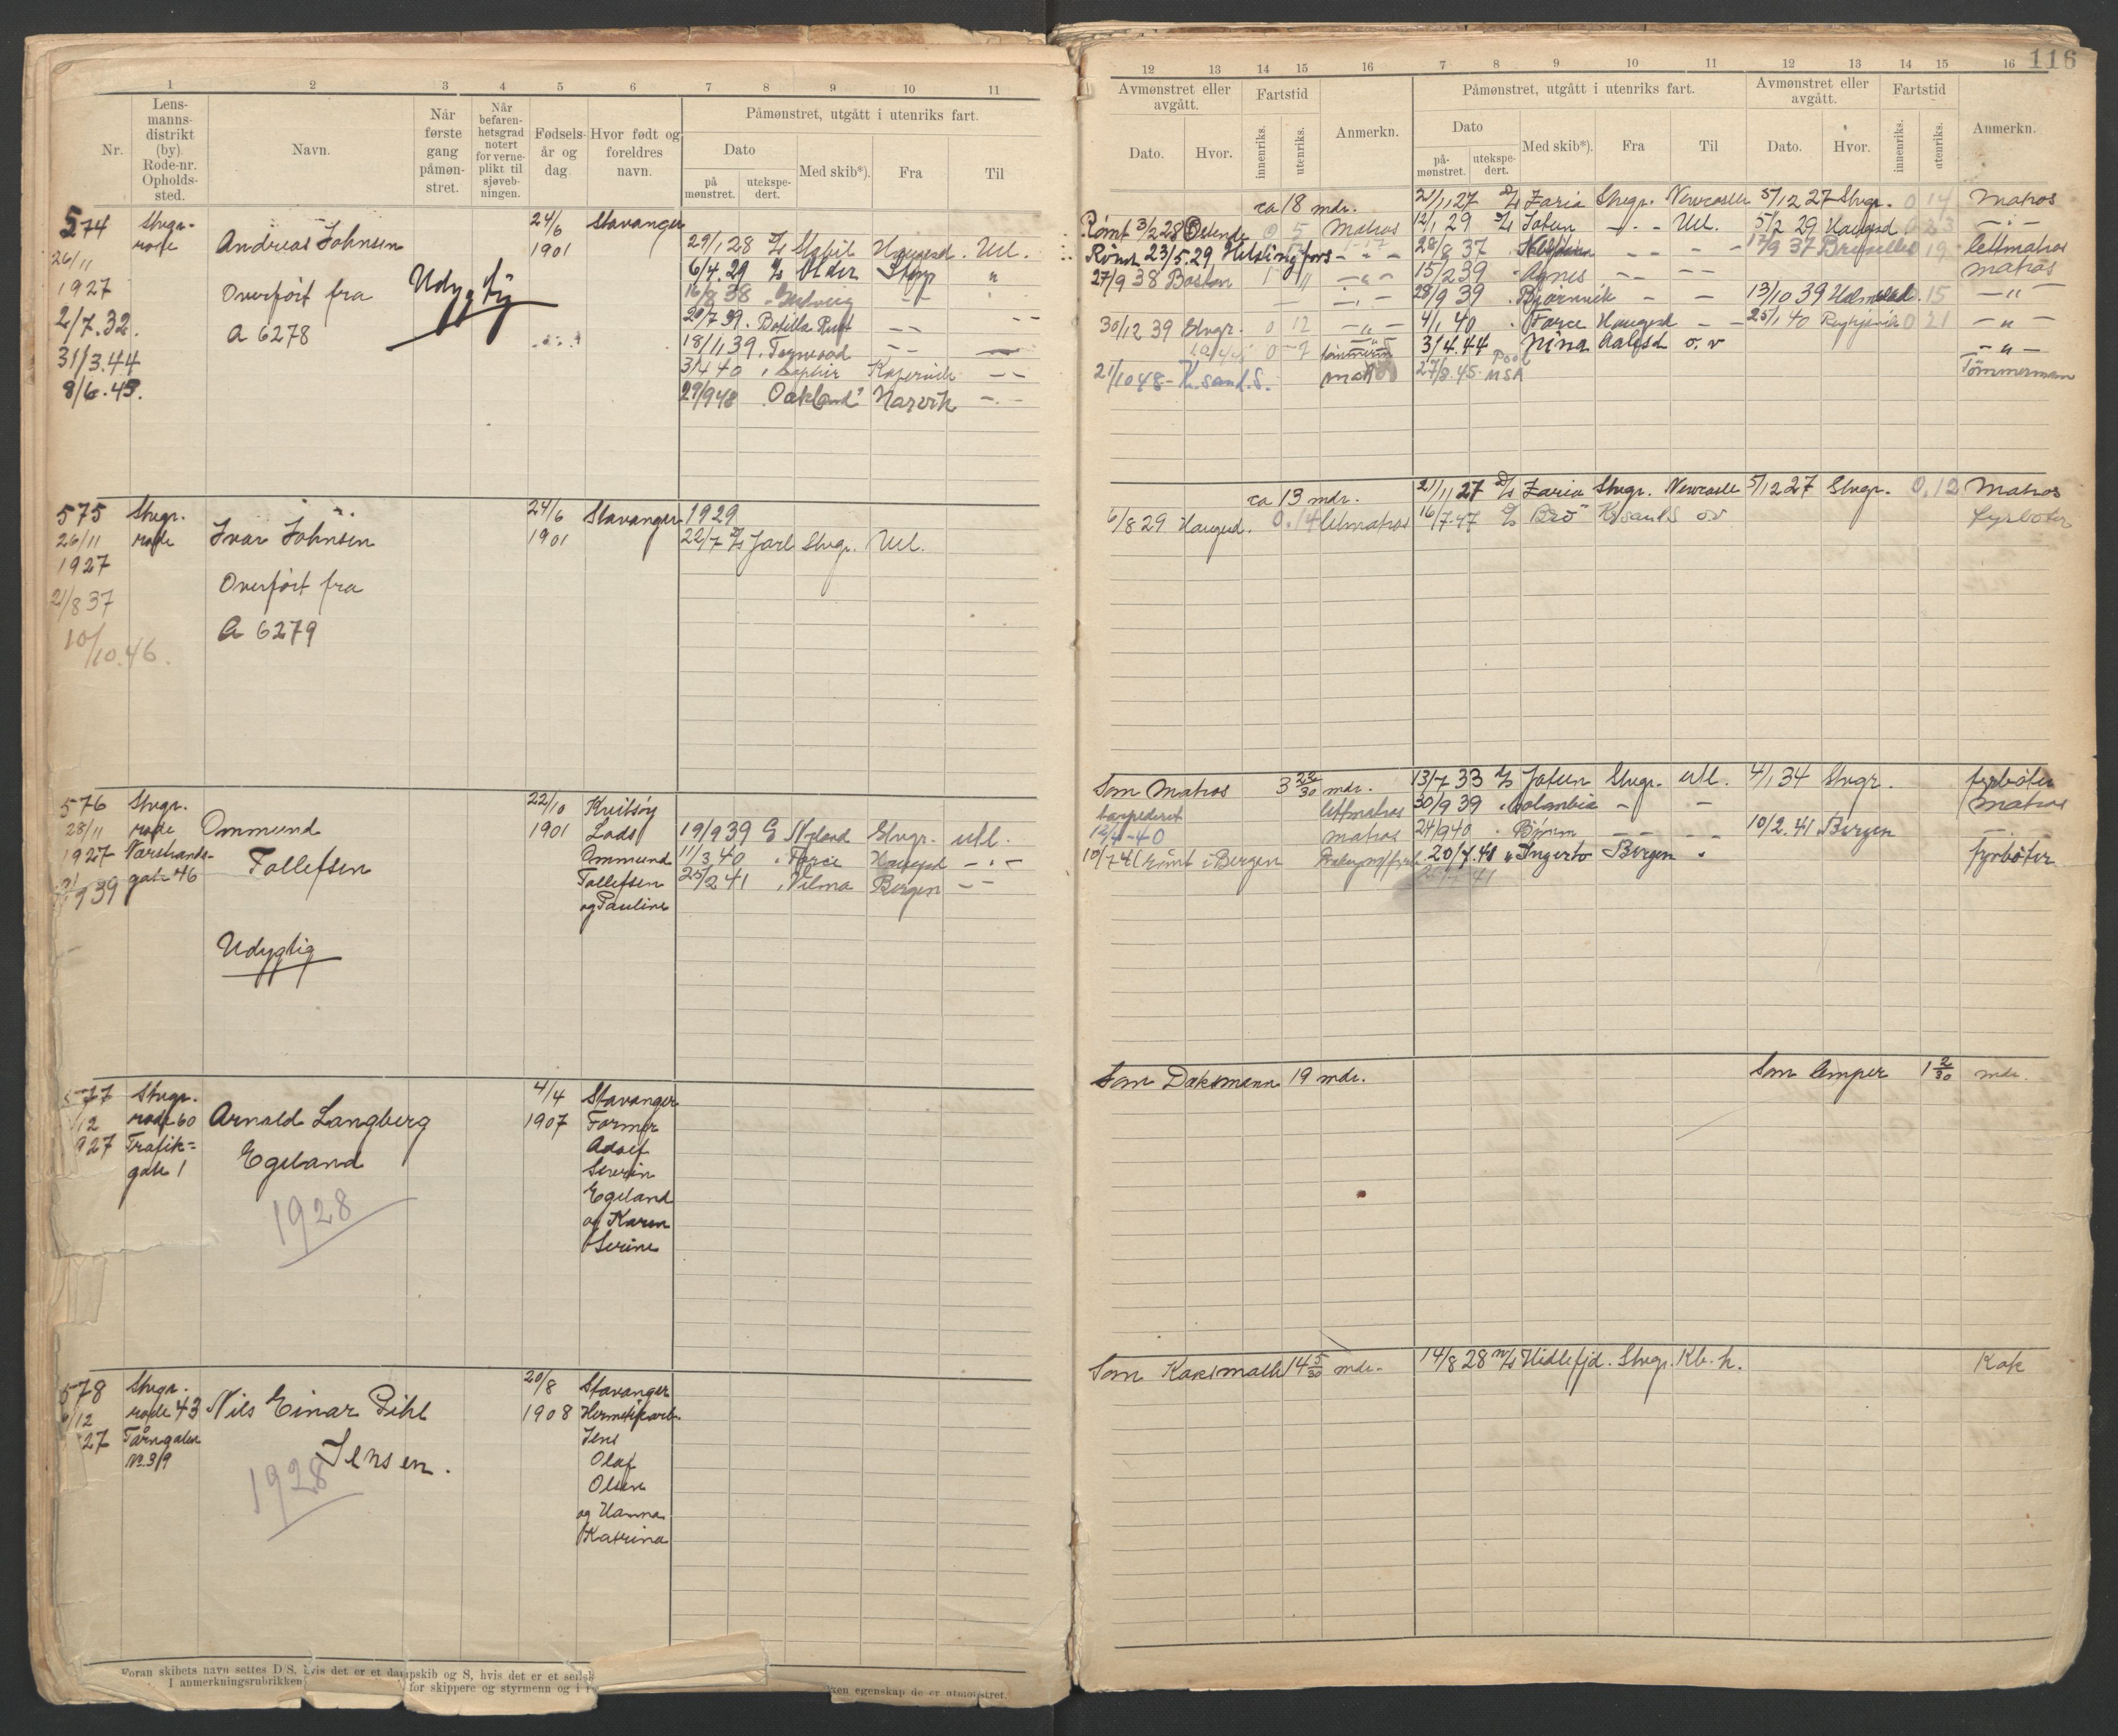 116
1 2 3 4 5 6 7 8 9 10 11
12 13 14 15 16 7 8 9 10 11 12 13 14 15 16
Nr.
Lens-
manns-
distrikt
(by).
Rode-nr.
Opholds-
sted.
Navn.
Når
første
gang
påmøn-
stret.
Når
befaren-
hetsgrad
notert
for verne-
plikt til
sjøveb-
ningen.
Fødsels-
år og
dag
Hvor født og
foreldres
navn.
Påmønstret, utgått i utenriks fart.
Dato
på
mønstret.
utekspe-
dert.
Med skib*).
Fra
Til
Avmønstret eller
avgått.
Dato.
Hvor.
Fartstid
innenriks.
utenriks.
Anmerkn.
Påmønstret, utgått i utenriks fart.
Dato
på-
mønstret.
utekspe-
dert.
Med skib*).
Fra
Til
Avmønstret eller
avgått.
Dato.
Hvor.
Fartstid
innenriks.
utenriks.
Anmerkn.
574
26/11
1927
2/7.32.
31/3.44
8/6.45.
Stvgr.
rode
Andreas Johnsen
Overført fra
A 6278
Udygtig
24/6
1901
Stavanger
29/1 28 Haugesd. Utl.
6/4.29 Older Stvgr "
16/8 38
20/7 39. Botilla Russ
18/11 39
3/4 40
29/9 48 "Oakland" Narvik
ca 18 mdr.
Rømt 3/2 28 Ostende 0 5 Matros
Rømt 23/5.29 Helsingfors
27/9 38 Boston
30/12 39 Stvgr. 0 12
21/10 48 - K. sand. S. mat
21/11 27 D/s Zaria Stvgr. Newcastle 5/12 27 Stvgr. 0 14 Matros
12/1 29 Jotun Utl. 5/2 29 Haugesd 0 23
28/8 37 17/9 37 19 lettmatros
15/2 39 Agnes matros
28/9 39 Bjørnvik 13/10 39 15
4/1 40 Force Haugesd 25/1 40 Reykjavik 0 21
3/4.44 Nina o. v
27/8.45 Pool USA Tømmermann
575
26/11
1927
21/8 37
10/10.46.
Stvgr.
rode
Ivar Johnsen
Overført fra
A 6279
24/6
1901
Stavanger
1929
22/7 D/s Jarl Stvgr. Utl.
ca 13 mdr.
6/8 29 Haugesd. 0.14 lettmatros
21/11 27 D/s Zaria Stvgr. Newcastle 5/12 27 Stvgr. 0.12 Matros
16/7.47 "Bro" Kr.sand.S ov fyrbøter
576
28/11
1927
9 39
Stvgr.
rode
Varstrands-
gate 46
Ommund
Tollefsen
Udygtig
22/10
1901
Kvitsøy
Lods
Ommund
Tollefsen
og Pauline
19/9 39 Stvgr. utl.
11/3 40 Force Haugesd
25/2 41 Vilma Bergen
Som Matros 3 22/30 mdr.
torpedert lettmatros
12/4-40 matros
10/7 41 rømt i Bergen
13/7 33 Jotun Stvgr. utl. 4/1 34 Stvgr. fyrbøter
30/9 39 Columbia matros
24/9 40 Bjørn 10/2.41 Bergen
20/7.41 "Ingerto Bergen fyrbøter
577
1/12
927
Stvgr.
rode 60
Trafik=
gate 1
Arnold Langberg
Egeland
1928
4/4
1907
Stavanger
Former
Adolf
Severin
Egeland
og Karen
Serine
Som Dæksmann 19 mdr.
Som lemper 1 2/30 mdr.
578
/12
27
Stvgr.
rode 43
Tårngaten
No. 39
Nils Einar Pihl
Jensen.
1928
20/8
1908
Stavanger
Hermetikarb.
Jens
Olaf
Olsen
og Hanna
Katrina
Som Koksmath 14 5/30 mdr.
14/8 28 m/s Hidlefjd. Stvgr. Kb.h. Kok
Foran skibets navn settes D/S, hvis det er et dampskib og S, hvis det er et seilsk
I anmerkningsrubrikken for skippere og styrmenn og i
ken egenskap de er utmønstret.